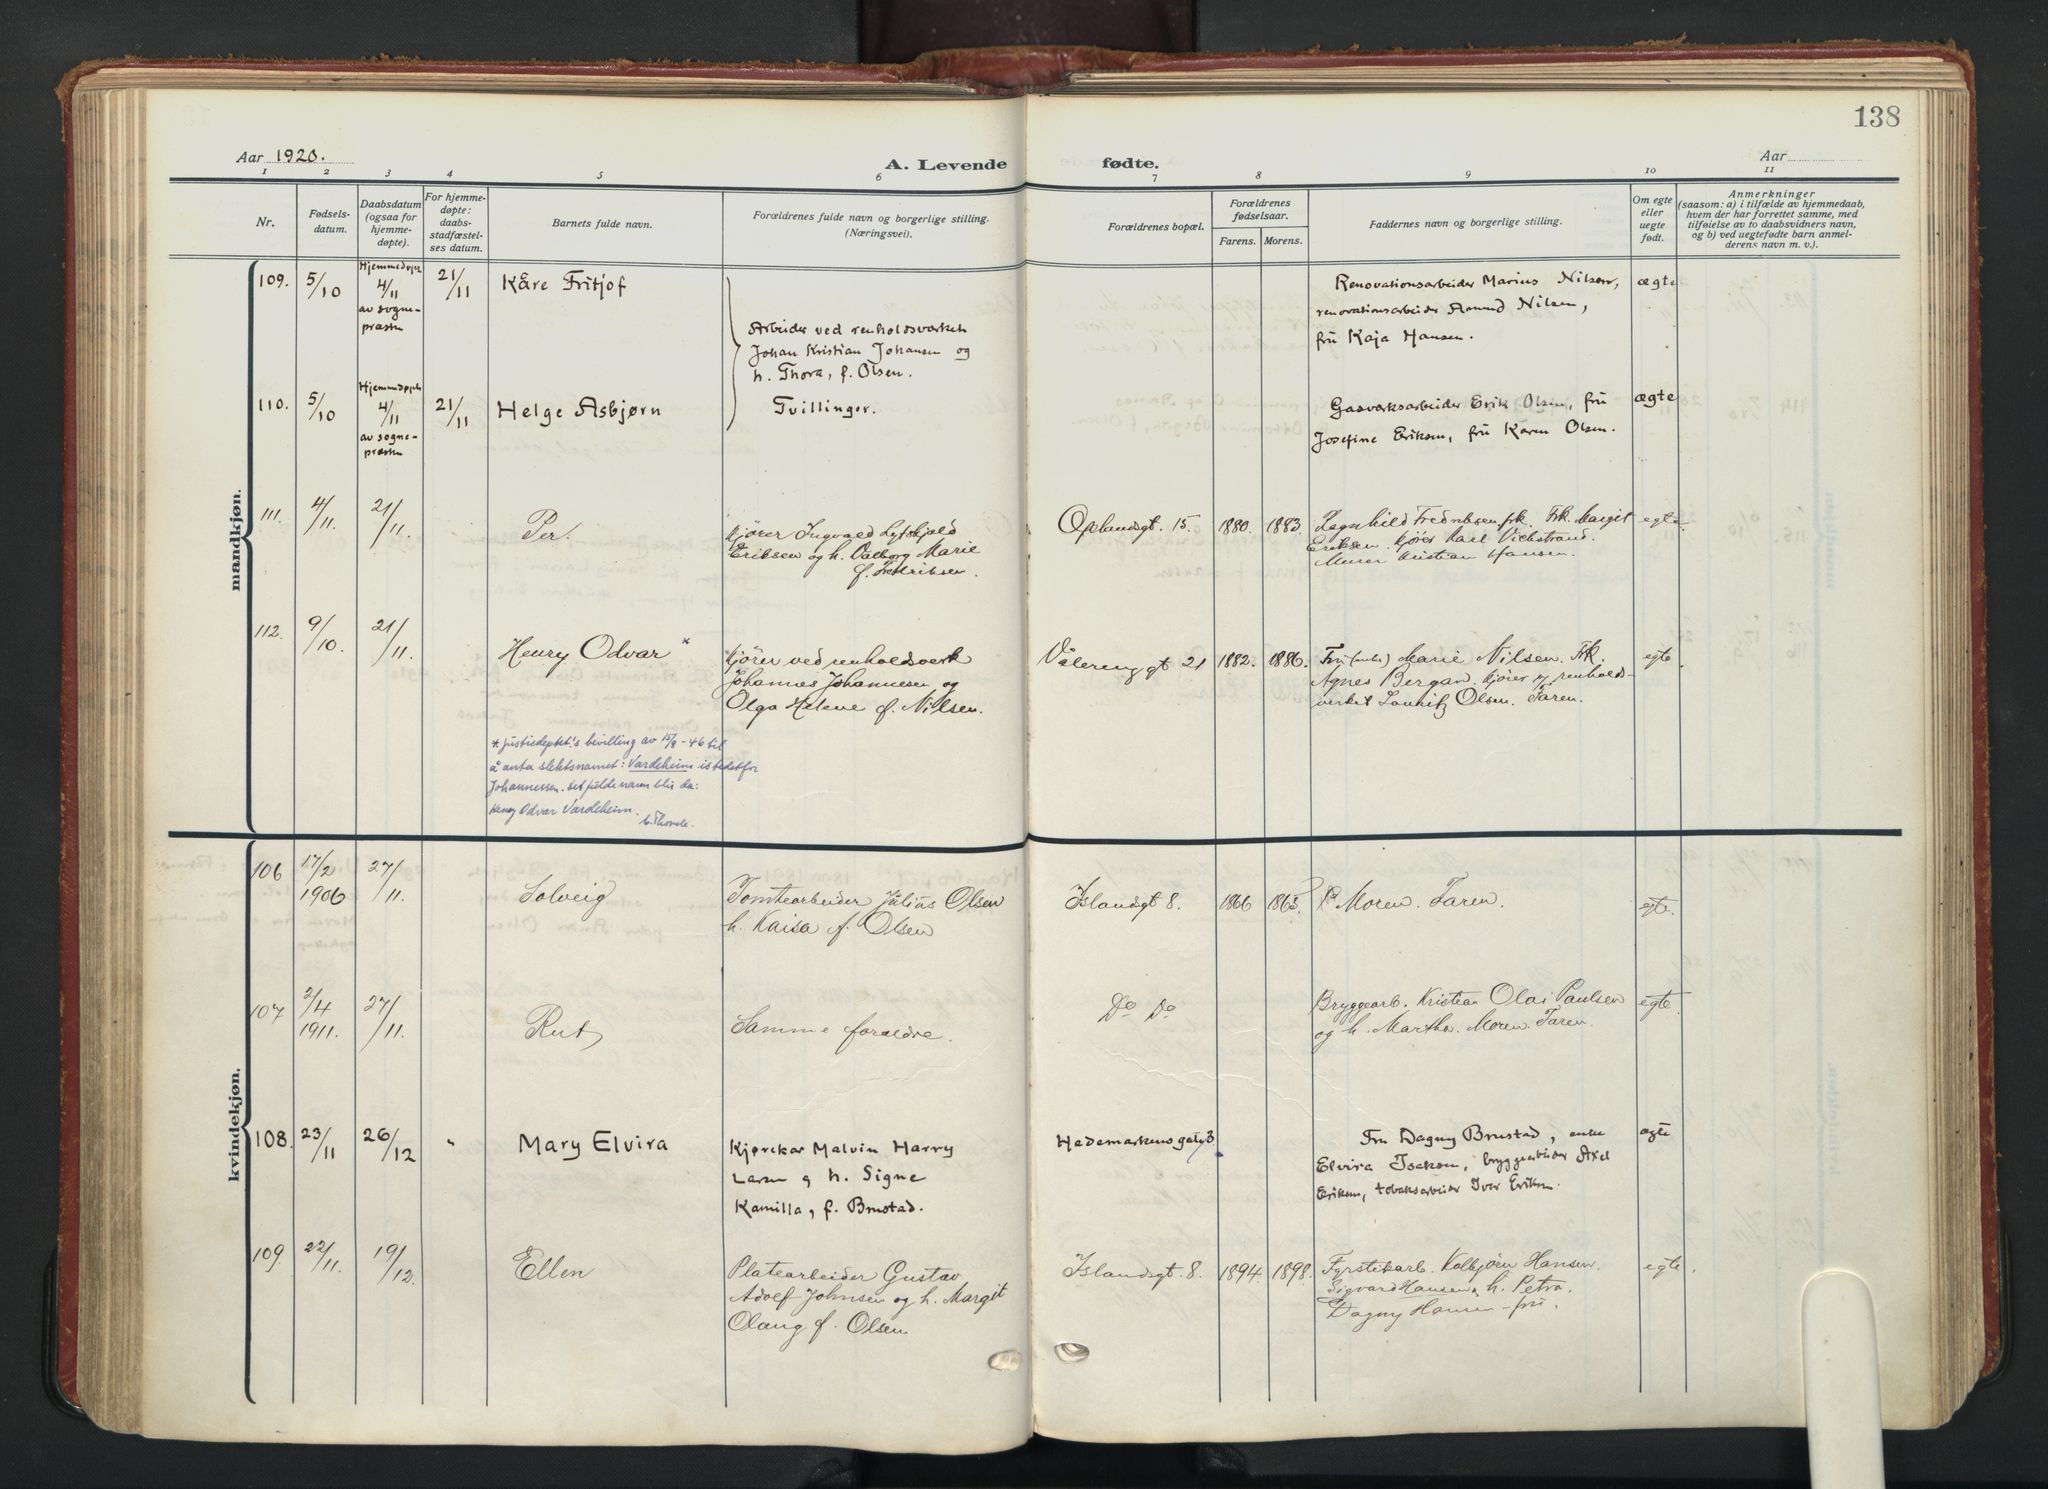 138
Aar 1920.
A. Levende fødte.
Aar
1 2 3 4 5 6 7 8 9 10 11
Nr.
Fødsels-
datum.
Daabsdatum
(ogsaa for
hjemme-
døpte).
For hjemme-
døpte:
daabs-
stadfæstel-
ses datum.
Barnets fulde navn.
Forældrenes fulde navn og borgerlige stilling.
(Næringsvei).
Forældrenes bopæl.
Forældrenes
fødselsaar.
Farens. Morens.
Faddernes navn og borgerlige stilling.
Om egte
eller
uegte
født.
Anmerkninger
(saasom: a) i tilfælde av hjemmedaab,
hvem der har forrettet samme, med
tilføielse av to daabsvidners navn,
og b) ved uegtefødte barn anmel-
derens navn m. v.).
mandkjøn.
109. 5/10
Hjemmedøpt
4/11
av sogne-
præsten
21/11
Kåre Fritjof
Arbeider ved renholdsverket
Johan Kristian Johansen og
h. Thora, f. Olsen.
Renovationsarbeider Marius Nilsen,
renovationsarbeider Amund Nilsen,
fru Kaja Hansen.
ægte
110. 5/10
Hjemmedøpt
4/11
av sogne-
præsten
21/11
Helge Asbjørn
Tvillinger.
Gasverksarbeider Erik Olsen, fru
Josefine Eriksen, fru Karen Olsen.
ægte
111. 4/11. 21/11.
Per.
Kjører Ingvald
Eriksen og h. Valborg Marie
f. Fredriksen.
Oplandsgt. 15. 1880. 1883.
Ragnhild Fredriksen frk. Frk. Margit
Eriksen. Kjører Karl
Murer Kristian Hansen.
egte.
112. 9/10. 21/11.
Henry Odvar *
Kjører ved renholdsverk
Johannes Johannesen og
Olga Helene f. Nilsen.
Vålerenggt 21 1882. 1886.
Fru (enke) Marie Nilsen. Frk.
Agnes Bergan. Kjører v renholds-
verket Lauritz Olsen. Faren.
egte.
* Justisdeptet.'s bevilling av 15/8-46 til
å anta slektsnamet: Vardeheim istedetfor
Johannessen. Det fulde navn blir da:
Henry Odvar Vardeheim.
kvindekjøn.
106 17/2
1906
27/11.
Solveig
Tomtearbeider Julius Olsen
h. Kaisa f. Olsen
Islandsgt 8. 1866 1863.
Moren. Faren.
egte.
107 2/4
1911.
27/11.
Rut
Samme forældre.
Do Do
Bryggearb. Kristian Olai Paulsen
og h. Martha. Moren. Faren.
egte.
108. 23/11 26/12 "
Mary Elvira
Kjørekar Malvin Harry
Larsen og h. Signe
Kamilla, f. Brustad.
Hedemarkensgaten 3
Fru Dagny Brustad, enke
Elvira Isaksen, bryggearbeider Axel
Eriksen, tobaksarbeider Iver Eriksen.
ægte
109. 22/11. 19/12.
Ellen
Platearbeider Gustav
Adolf Johnsen og h. Margit
Olaug f. Olsen
Islandsgt. 8. 1894. 1898.
Fyrstikarb. Kolbjørn Hansen.
Sigvard Hansen, h. Petra.
Dagny Hansen – fru.
egte.